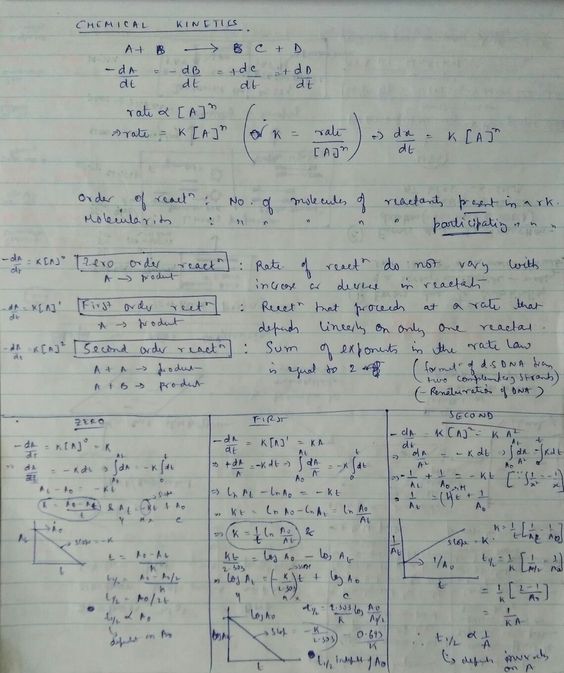 CHEMICAL KINETICS.
A + B → C + D
-dA/dt = -dB/dt = +dC/dt = +dD/dt
rate ∝ [A]^n
⇒ rate = K[A]^n (or K = rate/[A]^n) ⇒ dx/dt = K[A]^n
Order of react^n : No. of molecules of reactants present in a rxn.
Molecularity : " " " " " participating " "
-dA/dt = K[A]^0 Zero order react^n : Rate of react^n do not vary with
A → product increase or decrease in reactants
-dA/dt = K[A]^1 First order react^n : React^n that proceeds at a rate that
A → product depends linearly on only one reactant.
-dA/dt = K[A]^2 Second order react^n : Sum of exponents in the rate law
A + A → product is equal to 2
A + B → product
(format^n of ds DNA from two complementary strands)
(- Renaturation of DNA)
ZERO
-dA/dt = K[A]^0 = K
⇒ = -Kdt ⇒ ∫dA = -K∫dt
At - A0 = -Kt
K = (A0 - At)/t & At = -Kt + A0
y m x c
At
A0
slope = -K
t
t = (A0 - At)/K
t1/2 = (A0 - A0/2)/K
t1/2 = A0/2K
t1/2 ∝ A0
depends on A0
FIRST
-dA/dt = K[A]^1 = KA
⇒ +dA/A = -Kdt ⇒ ∫dA/A = -K∫dt
⇒ ln At - ln A0 = -Kt
⇒ Kt = ln A0 - ln At = ln A0/At
⇒ K = 1/t ln A0/At &
Kt/2.303 = log A0 - log At
⇒ log At = (-K/2.303) t + log A0
log At
log A0
slope = -K/2.303
t
t1/2 = 2.303/K log A0/(A0/2)
= 0.693/K
t1/2 indept of A0
SECOND
-dA/dt = K[A]^2 = KA^2
⇒ -dA/A^2 = Kdt ⇒ ∫dA/A^2 = -∫Kdt
⇒ -1/At + 1/A0 = -Kt
⇒ 1/At = Kt + 1/A0
1/At
slope = K
1/A0
t
K = 1/t [1/At - 1/A0]
= 1/K [(2-1)/A0]
= 1/KA
∴ t1/2 ∝ 1/A
↳ depends inversely
on A